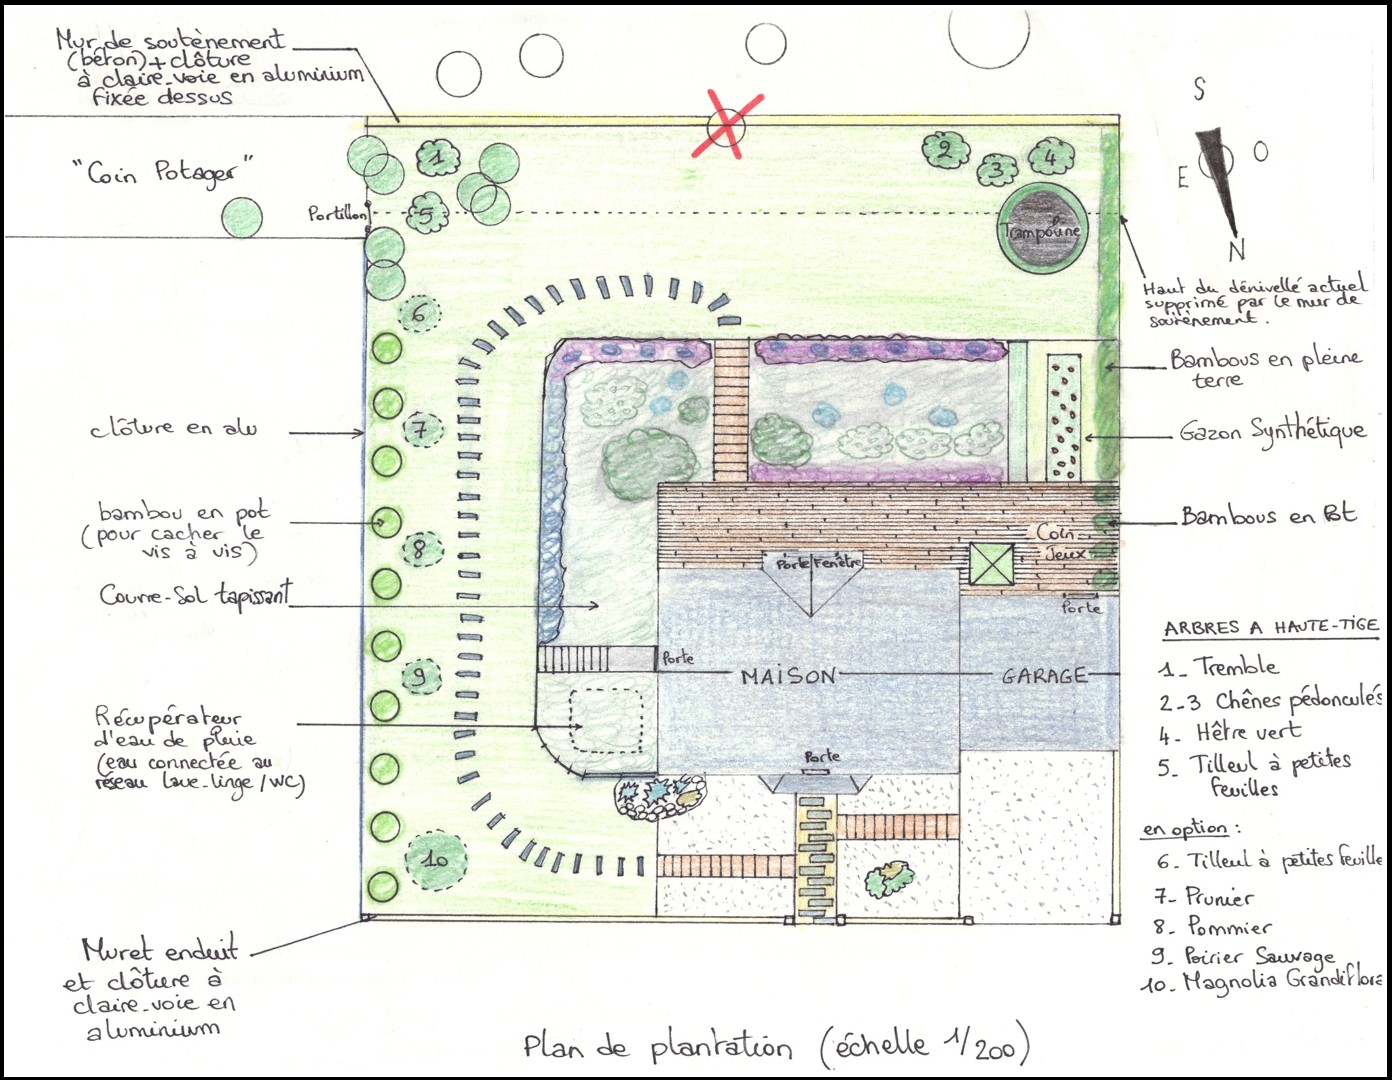 Mur de soutènement
(béton) + clôture
à claire-voie en aluminium
fixée dessus
"Coin Potager"
Portillon
1
5
2
3
4
Trampoline
S
E
O
N
Haut du dénivellé actuel
supprimé par le mur de
soutènement.
6
7
8
9
10
clôture en alu
bambou en pot
(pour cacher le
vis à vis)
Couvre-Sol tapissant
Récupérateur
d'eau de pluie
(eau connectée au
réseau lave-linge / WC)
Muret enduit
et clôture à
claire-voie en
aluminium
Bambous en pleine
terre
Gazon Synthétique
Bambous en Pot
Coin
Jeux
Porte Fenêtre
Porte
Porte
MAISON
GARAGE
Porte
ARBRES A HAUTE-TIGE
1_ Tremble
2_3 Chênes pédonculés
4_ Hêtre vert
5_ Tilleul à petites
feuilles
en option :
6_ Tilleul à petites feuille
7_ Prunier
8_ Pommier
9_ Poirier Sauvage
10_ Magnolia Grandiflora
Plan de plantation (échelle 1/200)